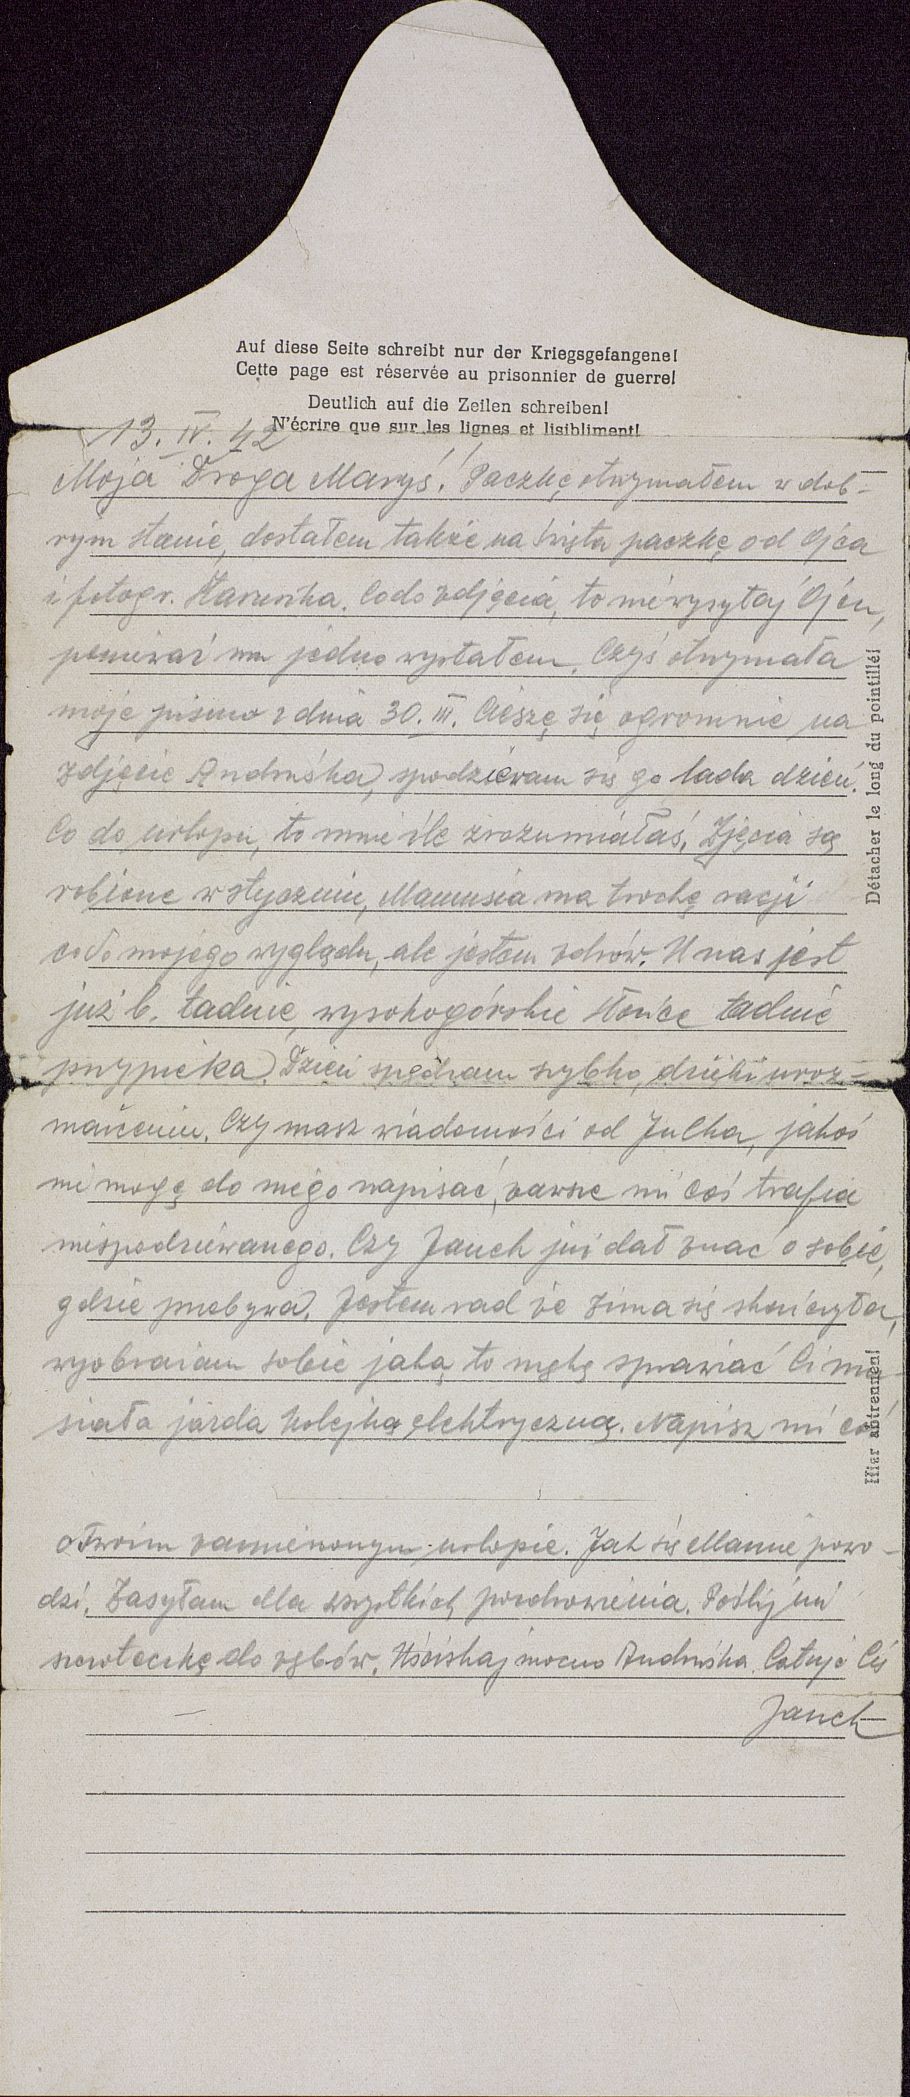 Auf diese Seite schreibt nur der Kriegsgefangene!
Cette page est réservée au prisonnier de guerre!
Deutlich auf die Zeilen schreiben!
N'écrire que sur les lignes et lisibliment!
13. IV. 42
Moja Droga Maryś! Paczkę otrzymałem w dob-
rym stanie, dostałem także na święta paczkę od Ojca
i fotogr. Co do zdjęcia, to nie wysyłaj Ojcu,
ponieważ mu jedno wysłałem. Czyś otrzymała
moje pismo z dnia 30. III. Cieszę się ogromnie na
zdjęcie Andruśka, spodziewam się go lada dzień.
Co do urlopu, to mnie źle zrozumiałaś. Zjęcia są
robione w styczniu, Mamusia ma trochę racji
co do mojego wyglądu, ale jestem zdrów. U nas jest
już b. ładnie, wysokogórskie słońce ładnie
przypieka. Dzień spędzam szybko, dzięki uroz-
maiceniu. Czy masz wiadomości od Julka, jakoś
nie mogę do niego napisać, zawsze mi coś trafia
niespodziewanego. Czy Janek już dał znać o sobie,
gdzie przebywa. Jestem rad że zima się skończyła,
wyobrażam sobie jaką to mękę sprawiać Ci mu-
siała jazda kolejką elektryczną. Napisz mi coś
o Twoim zamienionym urlopie. Jak się Mamie powo-
dzi. Zasyłam dla wszystkich pozdrowienia. Poślij mi
szczoteczkę do zębów. Uściskaj mocno Andruśka. Całuję Cię
Janek
Détacher le long du pointillé!
Hier abtrennen!